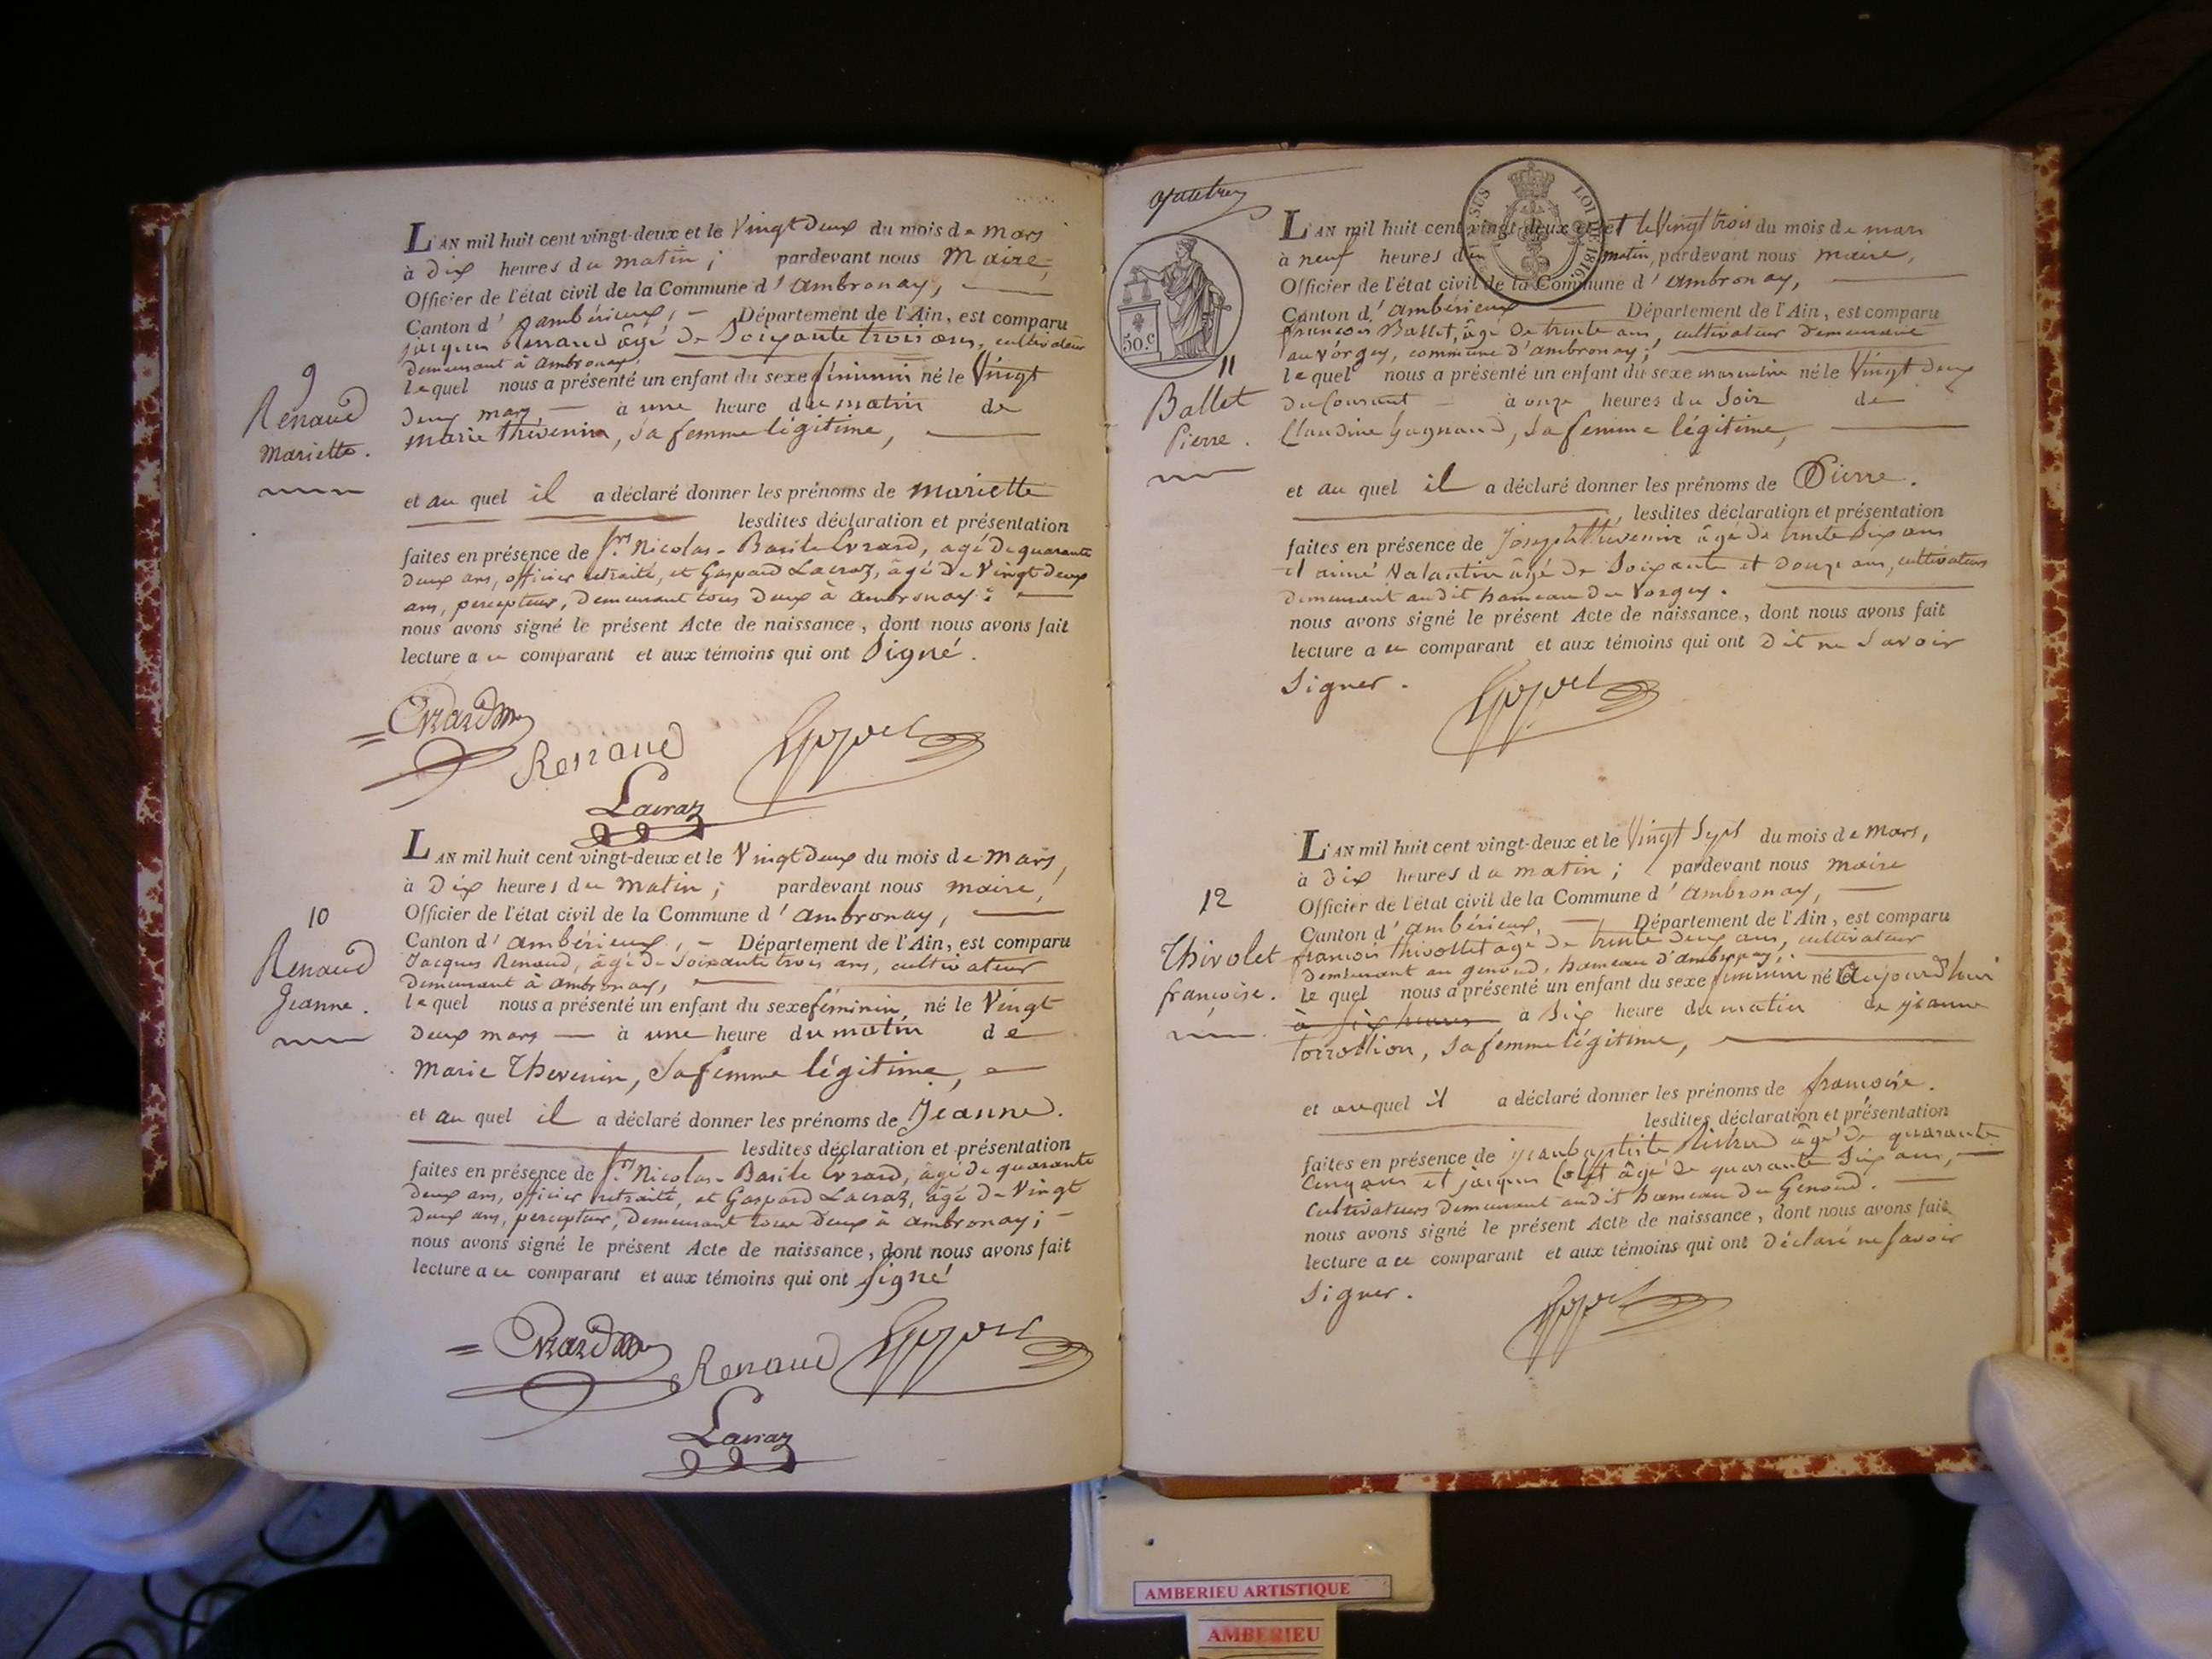 L'AN mil huit cent vingt-deux et le Vingt Deux du mois de mars
à Dix heures du matin ; pardevant nous Maire,
Officier de l'état civil de la Commune d'Ambronay,
Canton d'ambérieux, Département de l'Ain, est comparu
jacques Renaud âgé de Soixante trois ans, cultivateur
Demeurant à Ambronay,
lequel nous a présenté un enfant du sexe féminin né le Vingt
Deux mars à une heure du matin de
Marie thévenin, Sa femme légitime,
et au quel il a déclaré donner les prénoms de Mariette
lesdites déclaration et présentation
faites en présence de Srs Nicolas-Basile Evrard, agé de quarante
Deux ans, officier retraité, et Gaspard Lacraz, âgé de Vingt deux
ans, percepteur, Demeurant tous Deux à Ambronay ;
nous avons signé le présent Acte de naissance, dont nous avons fait
lecture au comparant et aux témoins qui ont Signé.
9
Renaud
Mariette.
Evrard
Renaud
Lacraz
L'AN mil huit cent vingt-deux et le Vingt Deux du mois de Mars,
à Dix heures du Matin ; pardevant nous maire,
Officier de l'état civil de la Commune d'Ambronay,
Canton d'ambérieux, Département de l'Ain, est comparu
Jacques Renaud, âgé de Soixante trois ans, cultivateur
Demeurant à Ambronay,
lequel nous a présenté un enfant du sexe féminin né le Vingt
Deux mars à une heure du matin de
Marie Thevenin, Sa femme légitime,
et au quel il a déclaré donner les prénoms de Jeanne.
lesdites déclaration et présentation
faites en présence de Srs Nicolas-Basile Evrard, âgé de quarante
Deux ans, officier retraité, et Gaspard Lacraz, âgé de Vingt
Deux ans, percepteur, Demeurant tous Deux à Ambronay ;
nous avons signé le présent Acte de naissance, dont nous avons fait
lecture au comparant et aux témoins qui ont signé
10
Renaud
Jeanne.
Evrard
Renaud
Lacraz
SUS LOI DE 1816.
50.c
L'AN mil huit cent vingt-deux et et le Vingt trois du mois de mars
à neuf heures du matin, pardevant nous maire,
Officier de l'état civil de la Commune d'Ambronay,
Canton d'Ambérieux Département de l'Ain, est comparu
françois Ballet, âgé de trente ans, cultivateur Demeurant
au Vorgey, commune d'ambronay ;
lequel nous a présenté un enfant du sexe masculin né le Vingt Deux
du Courant à onze heures du Soir de
Claudine Gagnaud, Sa femme légitime,
et au quel il a déclaré donner les prénoms de Pierre.
lesdites déclaration et présentation
faites en présence de Joseph thévenin âgé de trente Six ans
et aimé Valantin âgé de Soixante et Douze ans, cultivateurs
Demeurant audit hameau du Vorgey.
nous avons signé le présent Acte de naissance, dont nous avons fait
lecture au comparant et aux témoins qui ont Dit ne Savoir
Signer.
11
Ballet
Pierre.
L'AN mil huit cent vingt-deux et le Vingt Sept du mois de Mars,
à Dix heures du matin ; pardevant nous Maire
Officier de l'état civil de la Commune d'Ambronay,
Canton d'Ambérieux, Département de l'Ain, est comparu
françois thivollet âgé de trente Deux ans, cultivateur
Demeurant au genoud, hameau d'ambronay,
le quel nous a présenté un enfant du sexe féminin né le Aujourd'hui
à six heures à Six heure du matin de jeanne
torrollion, Sa femme légitime,
et au quel il a déclaré donner les prénoms de françoise.
lesdites déclaration et présentation
faites en présence de jean baptiste âgé de quarante
Cinq ans et jacques âgé de quarante Six ans,
Cultivateurs Demeurant audit hameau du Genoud.
nous avons signé le présent Acte de naissance, dont nous avons fait
lecture au comparant et aux témoins qui ont Déclaré ne savoir
Signer.
12
Thivolet
françoise.
AMBERIEU ARTISTIQUE
AMBERIEU